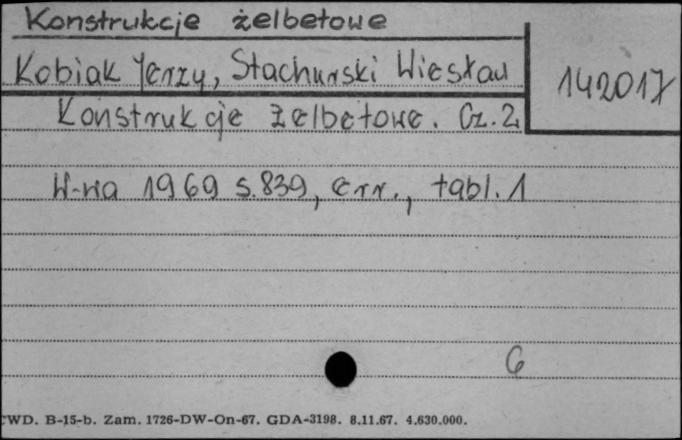 Konstrukcje żelbetowe
Kobiak Jerzy, Stachurski Wiesław
142017
Konstrukcje żelbetowe. Cz. 2
W-wa 1969 s. 839, err., tabl. 1
6
CWD. B-15-b. Zam. 1726-DW-On-67. GDA-3198. 8.11.67. 4.630.000.